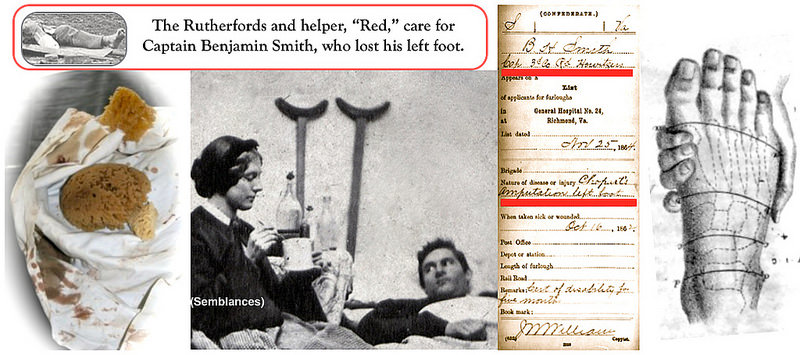 The Rutherfords and helper, “Red,” care for
Captain Benjamin Smith, who lost his left foot.
(Semblances)
(CONFEDERATE.)
S Va
B H Smith
Cap 3d Co Howitzers
Appears on a
List
of applicants for furloughs
in General Hospital No. 24,
at Richmond, Va.
List dated
Nov 25, 1864
Brigade
Nature of disease or injury Chopart's
Amputation left foot
When taken sick or wounded
Oct 16, 186
Post Office
Depot or station
Length of furlough
Rail Road
Remarks: Cert of disability for
five months
Book mark:
(635)
Copyist.